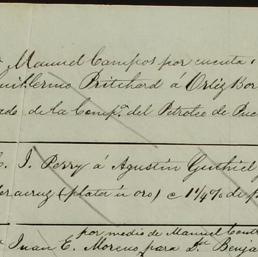 Manuel Campos por cuenta
Guillermo Pritchard á Ortiz Bor
ado de la Comp.ª del Petroleo de
J. Perry á Agustin Guthiel
Veracruz (plata ú oro) c 1 1/4 % de p
por medio de Manuel
Juan E. Moreno para D.ⁿ Benja